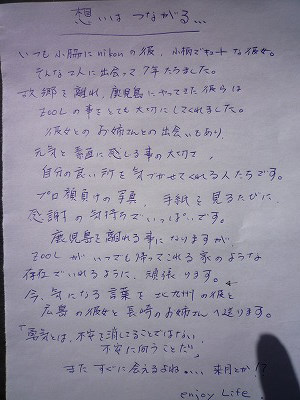 想いは つながる...
いつも小脇にnikonの彼、小柄でキュートな彼女。
そんな2人に出会って7年たちました。
故郷を離れ、鹿児島にやってきた彼らは
ZOOLの事をとても大切にしてくれました。
彼女とのお姉さんとの出会いもあり、
元気と素直に感じる事の大切さ、
自分の良い所を気づかせてくれる人たちです。
プロ顔負けの写真、手紙を見るたびに、
感謝の気持ちでいっぱいです。
鹿児島を離れる事になりますが、
ZOOLがいつでも帰ってこれる家のような
存在でいれるように、頑張ります。
今、気になる言葉を北九州の彼と
広島の彼女と長崎のお姉さんへ送ります。
「勇気とは、不安を消してることではない、
不安に向うことだ」
またすぐに会えるよね...、来月とか!?
enjoy Life.